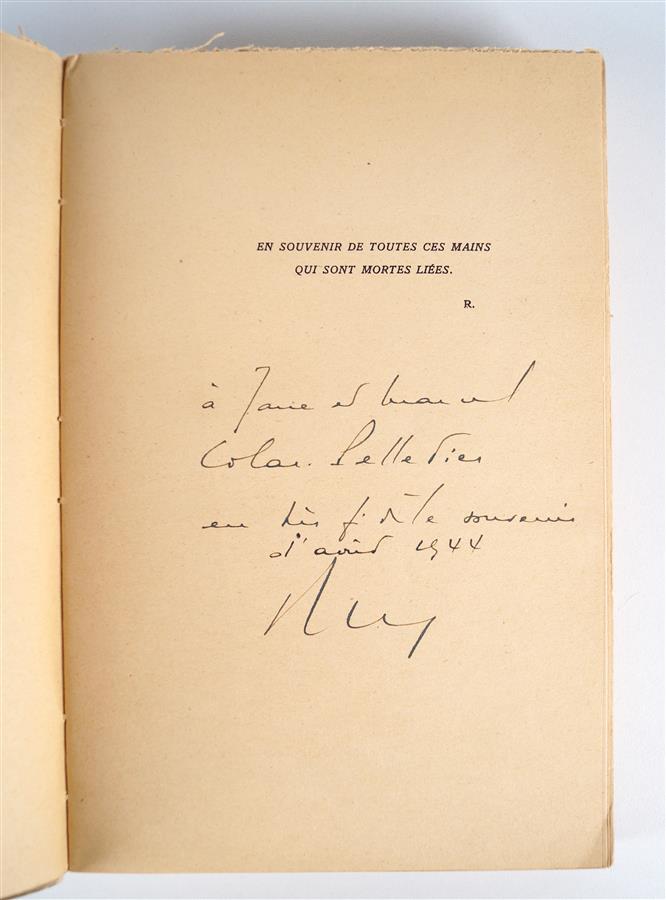 EN SOUVENIR DE TOUTES CES MAINS
QUI SONT MORTES LIÉES.
R.
à Jane et Marcel
Colar. Pelletier
en très fidèle souvenir
d'août 1944
Rémy